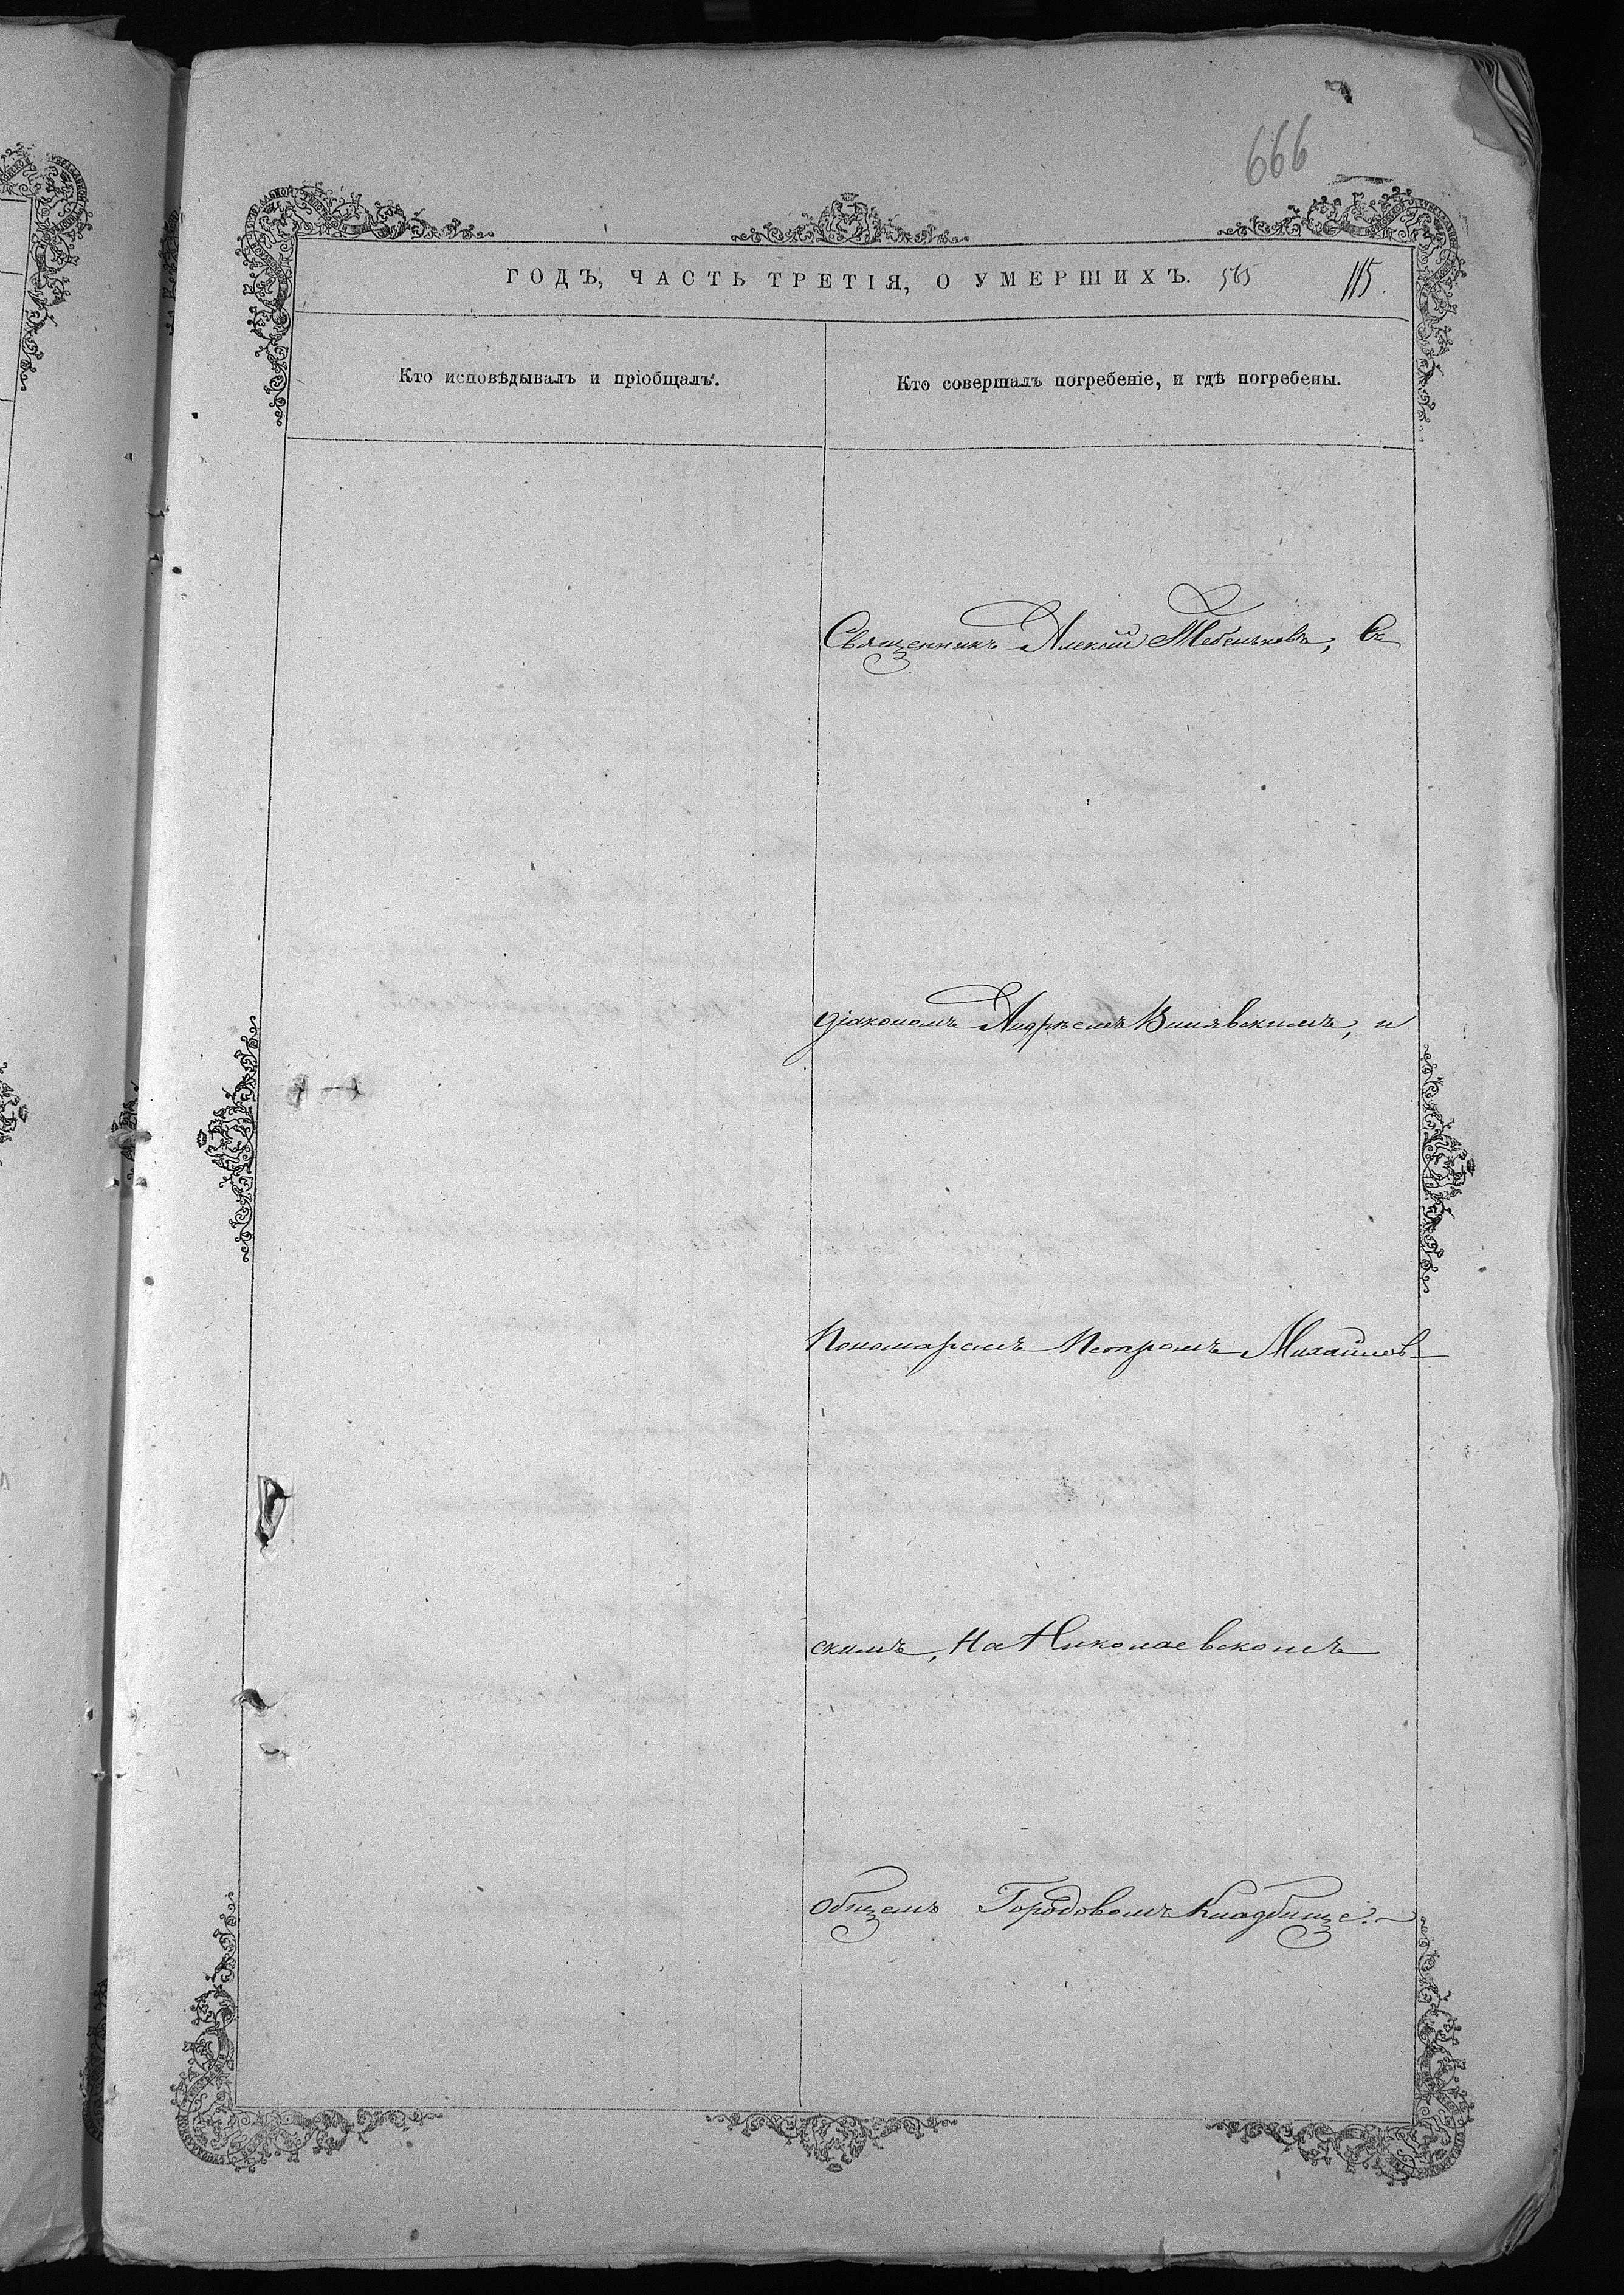 666
ГОДЪ, ЧАСТЬ ТРЕТІЯ, О УМЕРШИХЪ. 565 115.
Кто исповѣдывалъ и пріобщалъ.
Кто совершалъ погребеніе, и гдѣ погребены.
Священникъ Алексій Тебеньковъ, съ
діакономъ Андреемъ Винявскимъ, и
Пономаремъ Петромъ Михайлов-
скимъ, На Николаевскомъ
общемъ Городовомъ Кладбище.